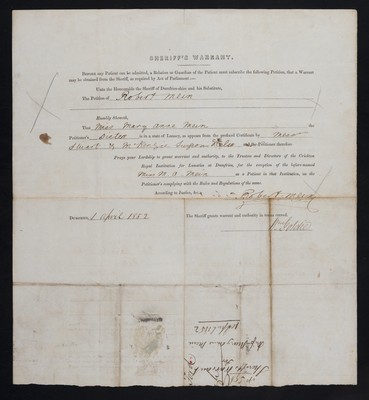 SHERIFF'S WARRANT.
BEFORE any Patient can be admitted, a Relative or Guardian of the Patient must subscribe the following Petition, that a Warrant
may be obtained from the Sheriff, as required by Act of Parliament:—
Unto the Honourable the Sheriff of Dumfries-shire and his Substitute,
The Petition of Robert Mein
Humbly sheweth,
That Miss Mary Anne Mein the
Petitioner's Sister is in a state of Lunacy, as appears from the prefixed Certificate by
Stuart &
Prays your Lordship to grant warrant and authority, to the Trustees and Directors of the Crichton
Royal Institution for Lunatics at Dumfries, for the reception of the before-named
Miss M. A. Mein as a Patient in that Institution, on the
Petitioner's complying with the Rules and Regulations of the same.
According to Justice, &c.
Robert Mein
DUMFRIES, 1 April 1852 The Sheriff grants warrant and authority as above craved.